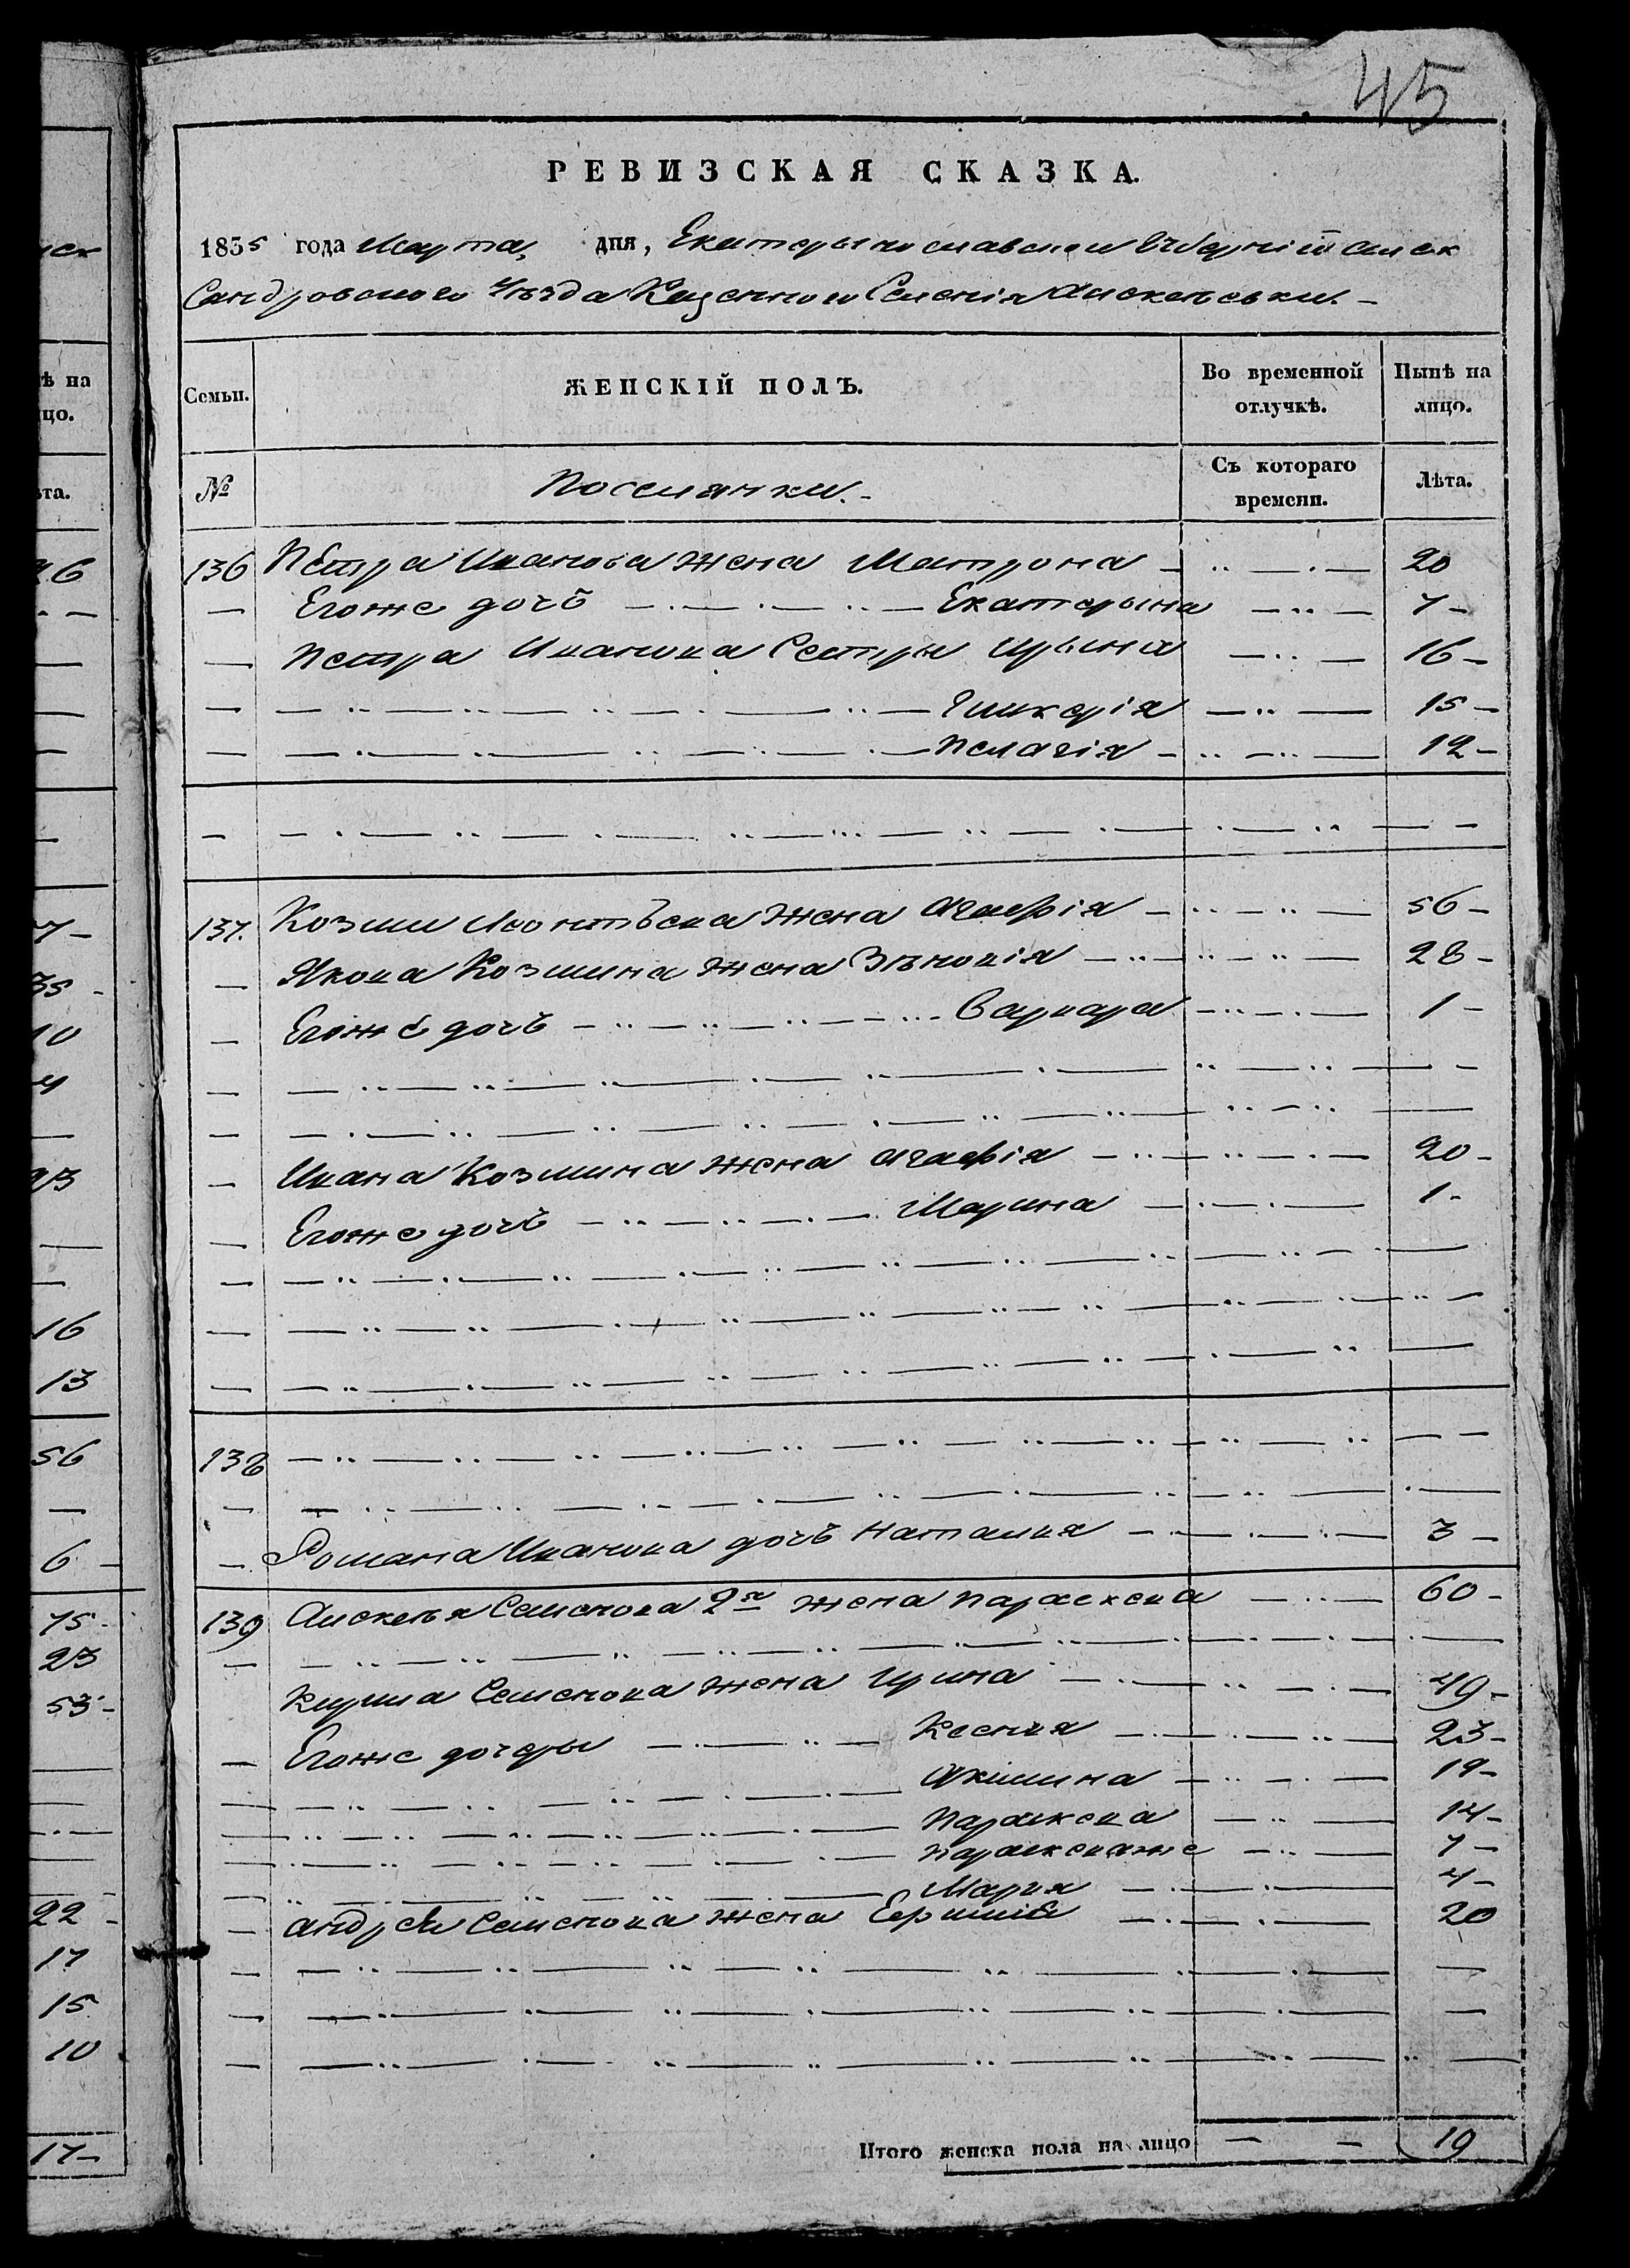 45
РЕВИЗСКАЯ СКАЗКА.
1835 года Марта, дня, Екатеринославской Губерніи Алек
Сандровского Уѣзда Казенного Селенія Алексѣевки. –
Семьи. ЖЕНСКІЙ ПОЛЪ. Во временной отлучкѣ. Нынѣ на лицо.
№ Поселянки. – Съ котораго времени. Лѣта.
136 Петра Иванова жена Матрона – 20
— Егоже дочь — Екатерына — 7 –
— Петра Иванова Сестры Ирына — 16 –
— Гликерія — 15 –
— Пелагія – 12 –
137. Козми Леонтѣева жена Агафія — 56 –
— Якова Козмина жена Зѣновія — 28 –
— Егоже дочь — Варвара — 1 –
— Ивана Козмина жена Агафія — 20 –
— Егоже дочь — Марина — 1 –
138
— Романа Иванова дочь Наталия — 3 –
139 Алексѣя Семенова 2я жена Параскева — 60 –
Кирила Семенова жена Ирина — 49 –
— Егоже дочеры — Ксения — 23 –
— Якилина — 19 –
— Параскева — 14 –
— Параскеваже — 7 –
— Мария — 4 –
— Андрея Семенова жена — 20
Итого женска пола на лицо — – 19
ѣ на
цо.
ѣта.
26
7 –
35 –
10
4
23
16
13
56
6 –
75 –
23
53 –
22 –
17
15
10
17 –